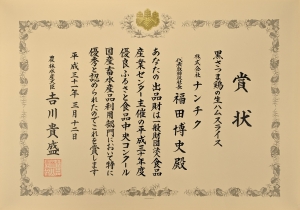 賞状
黒さつま鶏の生ハムスライス
株式会社 ナンチク
代表取締役社長 福田博史殿
あなたの出品財は一般財団法人食品
産業センター主催の平成三十年度
優良ふるさと食品中央コンクール
国産畜水産品利用部門において特に
優秀と認められたのでこれを賞します
平成三十一年三月十二日
農林水産大臣 吉川貴盛